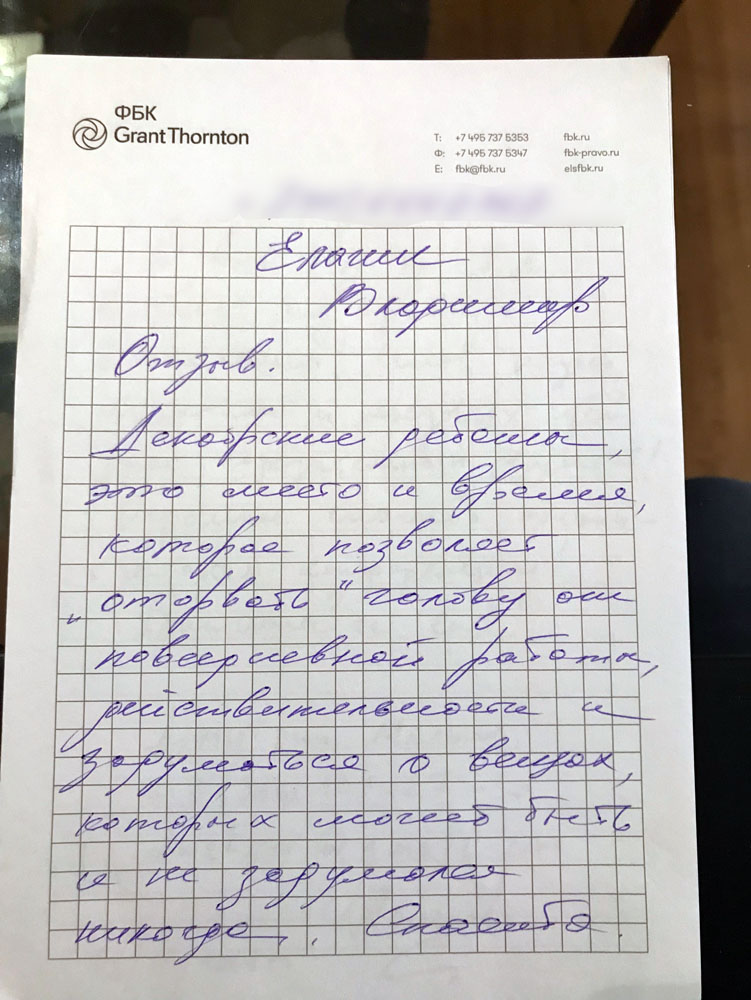 ФБК
Grant Thornton
Т: +7 495 737 5353 fbk.ru
Ф: +7 495 737 5347 fbk-pravo.ru
E: fbk@fbk.ru elsfbk.ru
Елагин
Владимир
Отзыв.
Декабрские дебаты,
это место и время,
которое позволяет
„оторвать" голову от
повседневной работы,
действительности и
задуматься о вещах,
которых может быть
и не задумался
никогда. Спасибо.